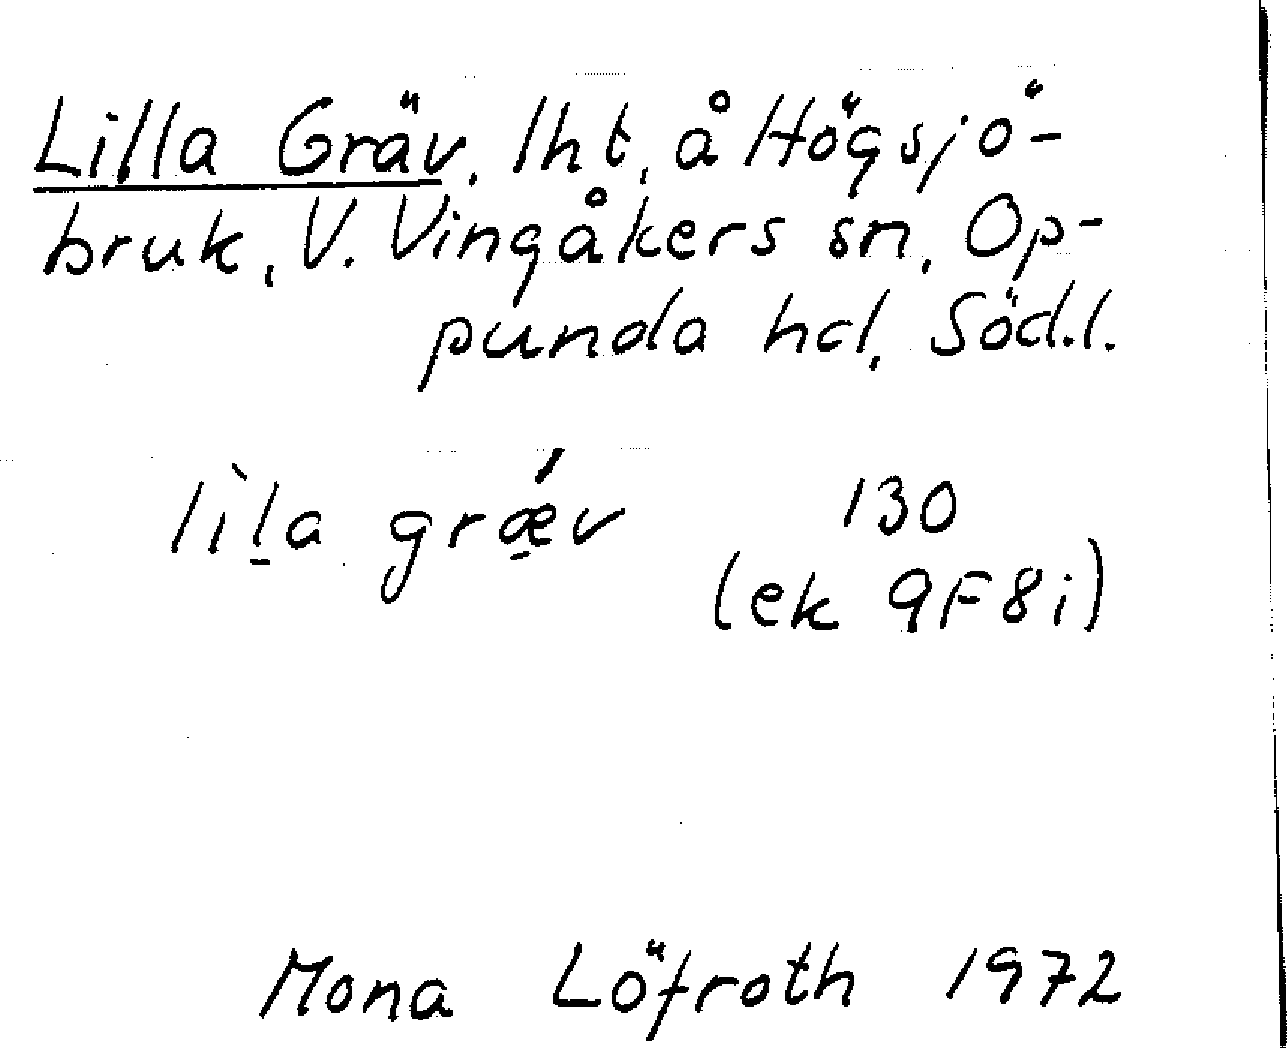 Lilla Gräv, lht, å Högsjö-
bruk, V. Vingåkers sn, Op-
punda hd, Söd.l.
lìl̠a grǽ̠v 130
(ek 9F8i)
Mona Löfroth 1972